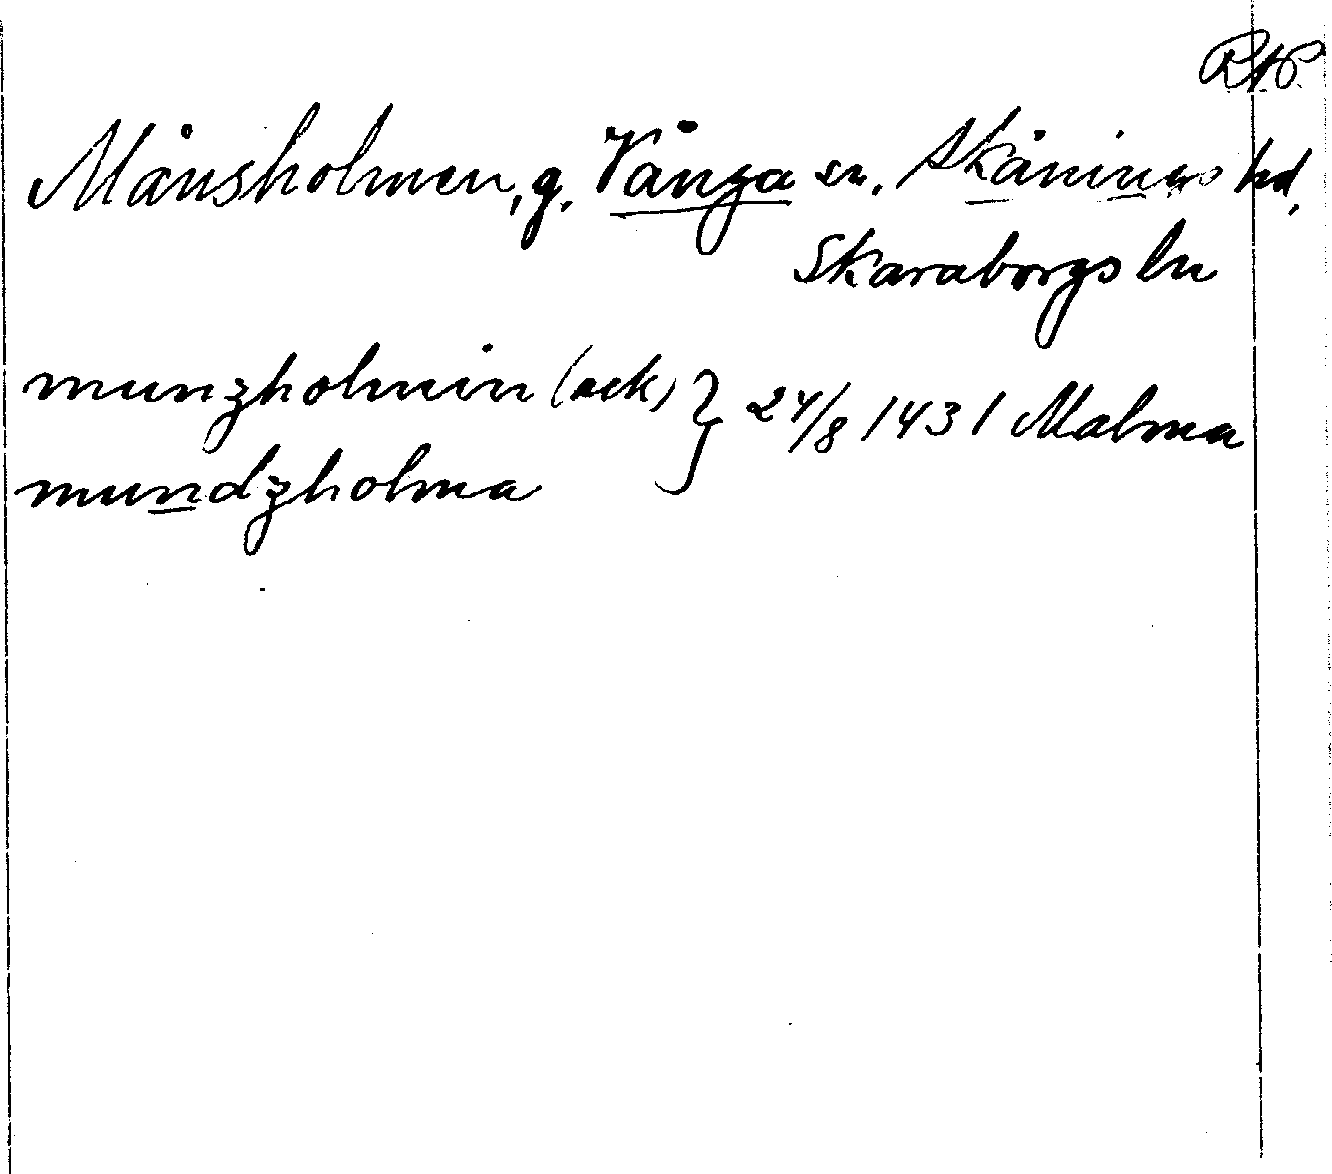 RAP.
Månsholmen, g. Vånga sn. Skånings hd,
Skaraborgs ln
munzholmin (ack)
mundzholma } 24/8 1431 Malma